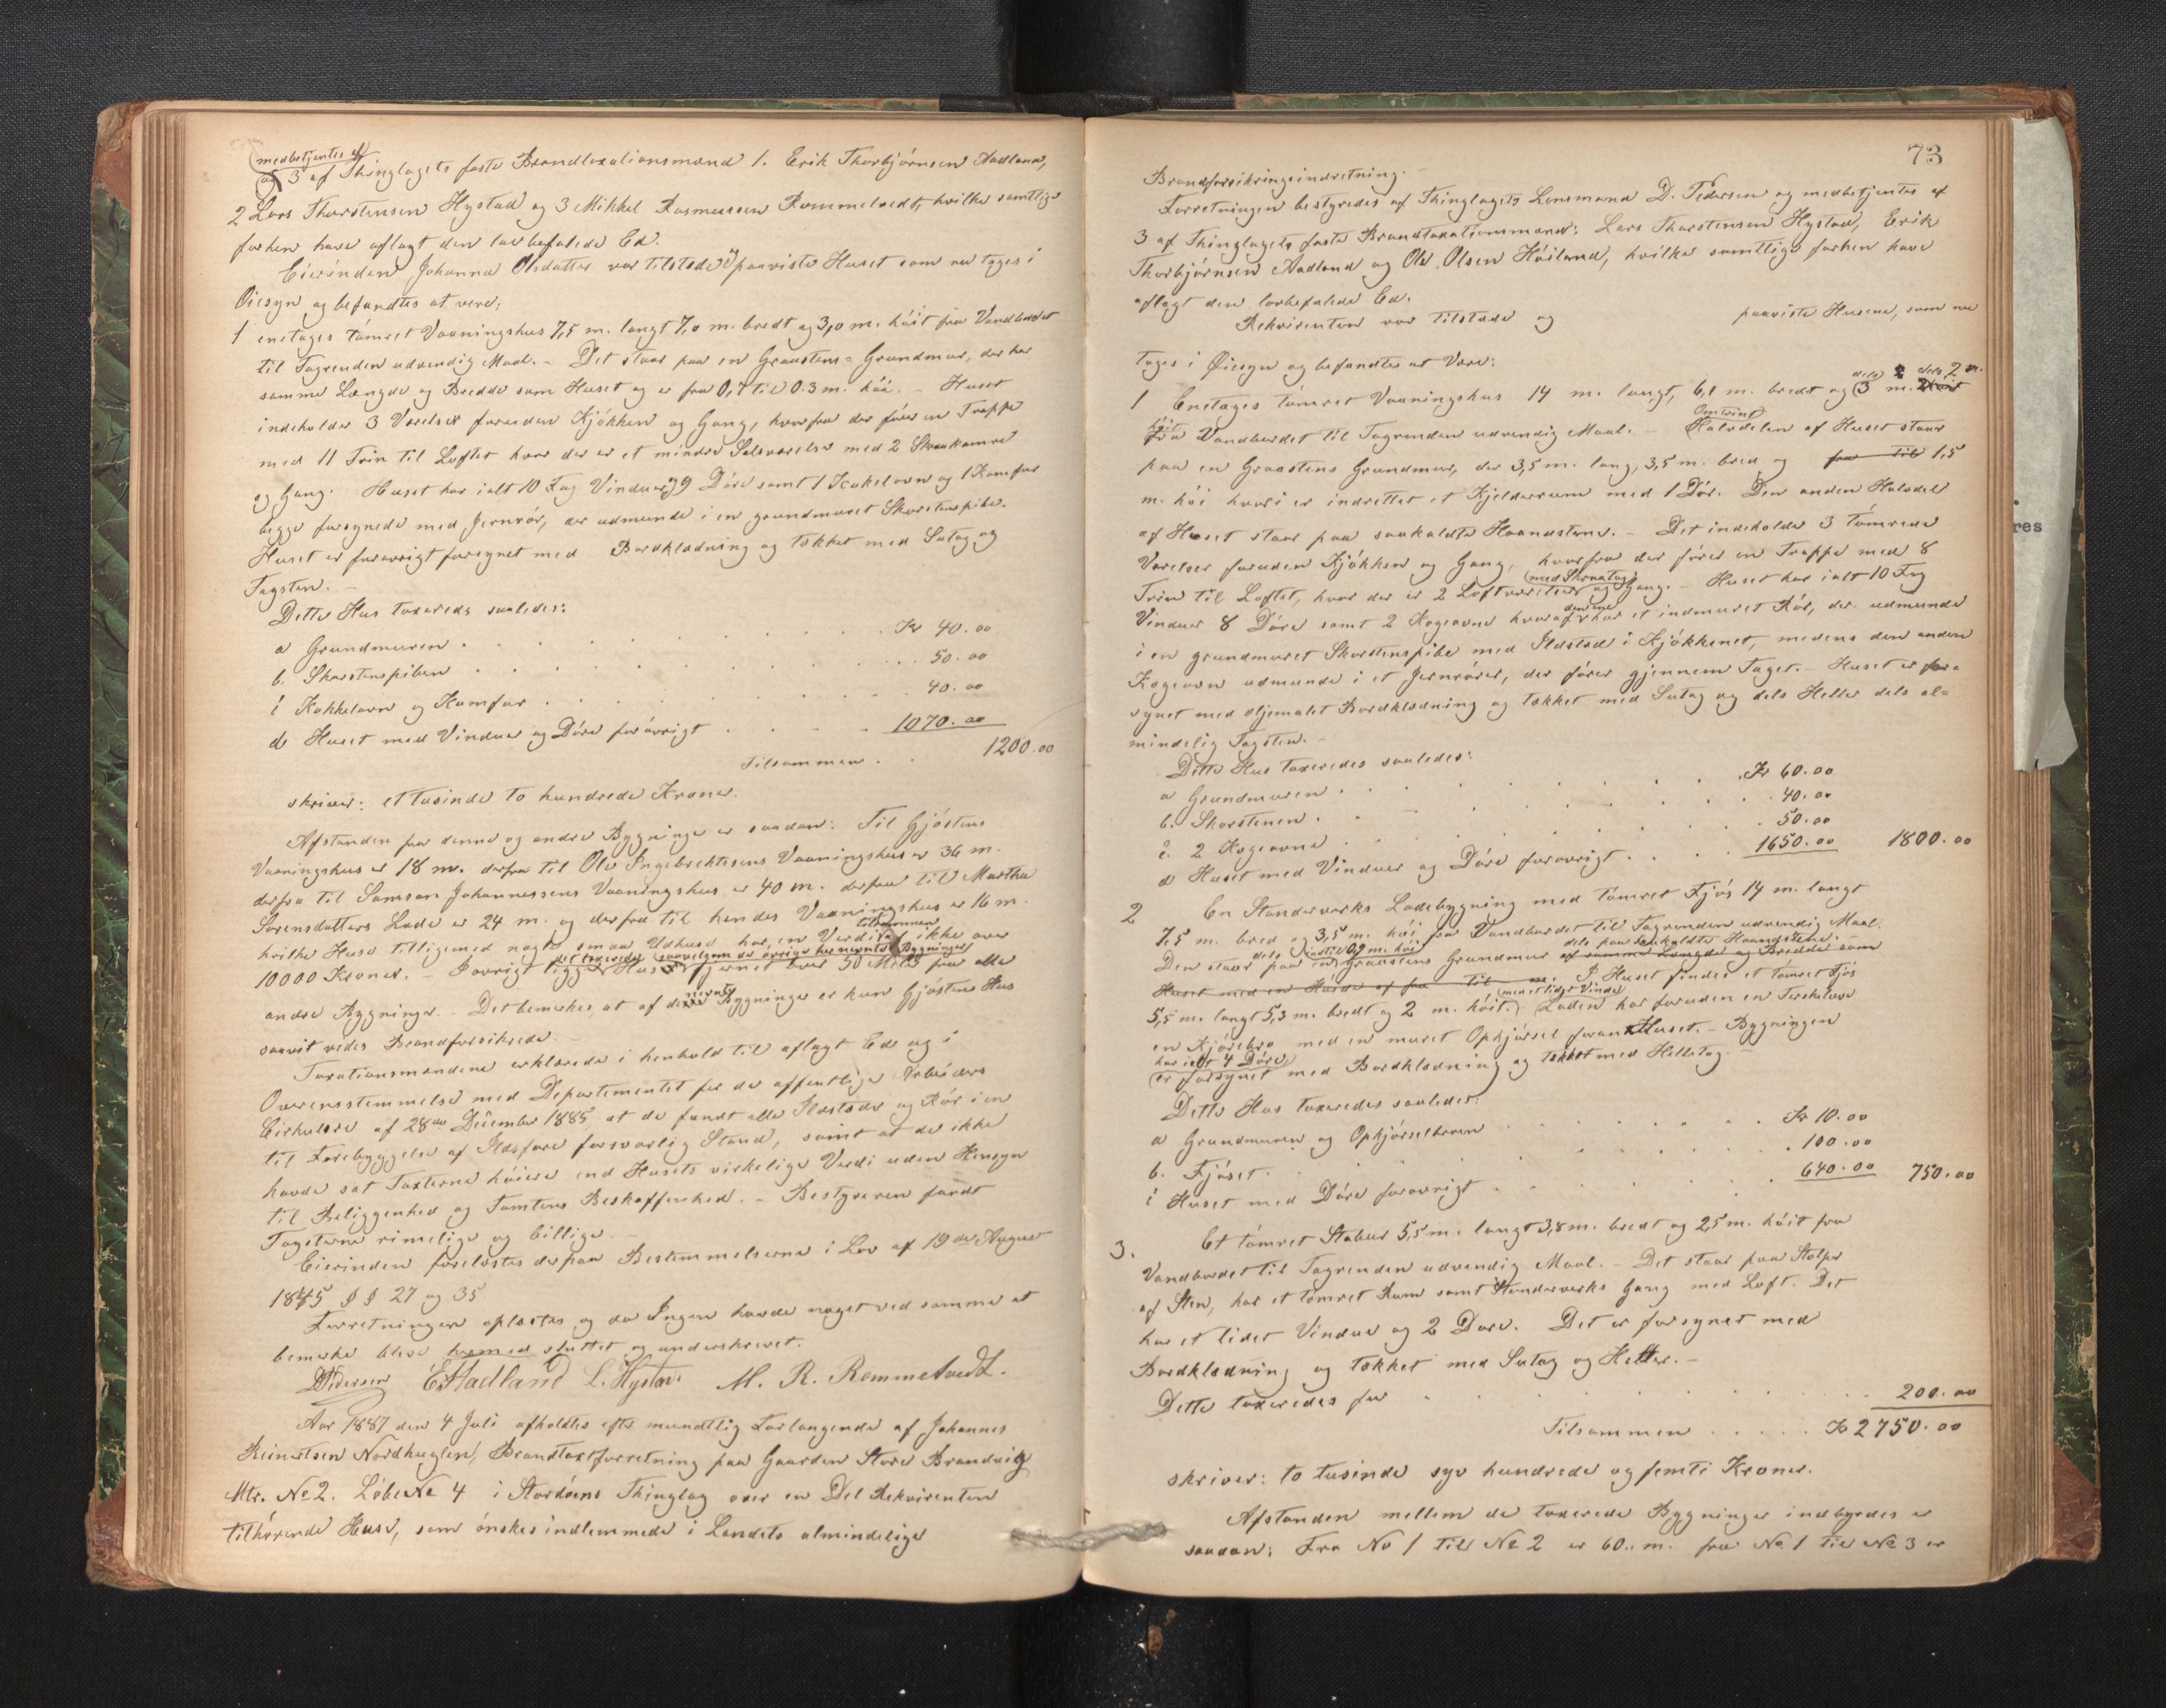 medbetjentes af
og 3 af Thinglagets faste Brandtaxationsmænd 1. Erik Thorbjørnsen Aadland,
2 Lars Thorstensen Hystad og 3 Mikkel Rasmussen Rommetvedt, hvilke samtlige
forhen have aflagt den lovbefalede Ed.
Eierinden Johanna Olsdatter var tilstede og paaviste Huset som nu toges i
Øiesyn og befandtes at være:
1 enetages tømret Vaaningshus 7,5 m. langt 7,0 m. bredt og 3,0 m. høit fra Vandbordet
til Tagrenden udvendig Maal. – Det staar paa en Graastens-Grundmur, der har
samme Længde og Bredde som Huset og er fra 0,7 til 0.3 m. høi. – Huset
indeholder 3 Værelser foruden Kjøkken og Gang, hvorfra der fører en Trappe
med 11 Trin til Loftet hvor der er et mindre Salsværelse med 2 Skraakamre
og Gang. Huset har ialt 10 Fag Vinduer, 9 Døre samt 1 Kakelovn og 1 Komfur
begge forsynede med Jernrør, der udmunde i en grundmuret Skorstenspibe.
Huset er forøvrigt forsynet med Bordklædning og tækket med Sutag og
Tagsten. –
Dette Hus taxeredes saaledes:
a Grundmuren . . . Kr 40.00
b. Skorstenspiben . . . 50.00
c Kakkelovn og Komfur . . . 40.00
d Huset med Vinduer og Døre forøvrigt . . . 1070.00
Tilsammen . . 1200.00
skriver: et tusinde to hundrede Kroner.
Afstanden fra denne og andre Bygninger er saadan: Til Gjøstens
Vaaningshus er 18 m. derfra til Ole Ingebrektssens Vaaningshus er 36 m.
derfra til Samson Johannessens Vaaningshus er 40 m. derfra til Martha
Sørensdatters Lade er 24 m. og derfra til hendes Vaaningshus er 16 m.
tilsammen
hvilke Huse tilligemed nogle smaa Udhuse har en Verdi af ikke over
det taxerede saavelsom de øvrige her nevnte Bygninger
10000 Kroner. – Iøvrigt ligger Huset fjernet over 50 Meter fra alle
nevnte
andre Bygninger. – Det bemerkes, at af disse Bygninger er kun Gjøstens Hus
saavit vides Brandforsikrede. –
Taxationsmændene erklærede i henhold til aflagt Ed og i
Overensstemmelse med Departementet for de offentlige Arbeiders
Cirkulære af 28de December 1885, at de fandt alle Ildsteder og Rør i en
til Forebyggelse af Ildsfare forsvarlig Stand, samt at de ikke
havde sat Taxterne høiere end Husets virkelige Verdi uden Hensyn
til Beliggenhed og Tomtens Beskaffenhed. – Bestyreren fandt
Taxterne rimelige og billige. –
Eierinden forelæstes derpaa Bestemmelserne i Lov af 19de August
1845 §§ 27 og 35
Forretningen oplæstes og da Ingen havde noget ved samme at
bemerke blev hermed sluttet og underskrevet.
D Pedersen E Aadland L. Hystad M. R. Rommetvedt.
Aar 1887 den 4 Juli afholdtes efter mundtlig Forlangende af Johannes
Reinertsen Nordhuglen, Brandtaxtforretning paa Gaarden Store Brandvig
Mtr. No 2. Løbe No 4 i Stordøens Thinglag over en Del Rekvirenten
tilhørende Huse, som ønskes indlemmede i Landets almindelige
73
Brandforsikringsindretning. –
Forretningen bestyredes af Thinglagets Lensmand D. Pedersen og medbetjentes af
3 af Thinglagets faste Brandtaxationsmænd: Lars Thorstensen Hystad, Erik
Thorbjørnsen Aadland og Ole Olsen Høiland, hvilke samtlige forhen have
aflagt den lovbefalede Ed.
Rekvirenten var tilstede og paaviste Husene, som nu
toges i Øiesyn og befandtes at være:
dels dels 2 m.
1 Enetages tømret Vaaningshus 14 m. langt, 6,1 m. bredt og 3 m. høit
høit Omtrent
fra Vandbordet til Tagrenden udvendig Maal. – Halvdelen af Huset staar
paa en Graastens Grundmur, der 3,5 m. lang, 3,5 m. bred og fra til 1,5
m. høi hvori er indrettet et Kjelderrum med 1 Dør. Den anden Halvdel
af Huset staar paa saakaldte Haandstene. – Det indeholder 3 tømrede
Værelser foruden Kjøkken og Gang, hvorfra der fører en Trappe med 8
med Skraatag
Trin til Loftet, hvor der er 2 Loftværelser og Gang. – Huset har ialt 10 Fag
den ene
Vinduer 8 Døre samt 2 Kogeovne hvoraf har et indmuret Rør, der udmunde
i en grundmuret Skorstenspibe med Ildsted i Kjøkkenet, medens den anden
Kogeovn udmunde i et Jernrører, der fører gjennem Taget. – Huset er for-
synet med oljemalet Bordklædning og tækket med Sutag og dels Heller dels al-
mindelig Tagsten. –
Dette Hus taxeredes saaledes:
a Grundmuren . . . Kr 60.00
b. Skorstenen . . . 40.00
c. 2 Kogeovne . . . 50.00
d Huset med Vinduer og Døre forøvrigt . . . 1650.00 1800.00
2 En Standerverks Ladebygning med tømret Fjøs 14 m. langt
7,5 m. bred og 3,5 m. høi fra Vandbordet til Tagrenden udvendig Maal.
dels indtil 0,9 m. høi dels paa saakaldte Haandstene.
Den staar paa en Graastens Grundmur af samme Længde og Bredde som
Huset med en Høide af fra til m. I Huset findes et tømret Fjøs
med et lidet Vindu
5,5 m. langt 5,3 m. bredt og 2 m. høit. Laden har foruden en Treskelave
en Kjørebro med en muret Opkjørsel foran Huset. – Bygningen
har ialt 4 Døre
er forsynet med Bordklædning og tækket med Helletag. –
Dette Hus taxeredes saaledes:
a Grundmuren og Opkjørselbroen . . . Kr 10.00
b. Fjøset . . . 100.00
c Huset med Døre forøvrigt . . . 640.00 750.00
3. Et tømret Stabur 5,5 m. langt 3,8 m. bredt og 2,5 m. høit fra
Vandbordet til Tagrenden udvendig Maal. – Det staar paa Stolper
af Sten, har et tømret Rum samt Standerverks Gang med Loft. Det
har et lidet Vindue og 2 Døre. Det er forsynet med
Bordklædning og tækket med Sutag og Heller. –
Dette taxeredes for . . . 200.00
Tilsammen . . . Kr 2750.00
skriver: to tusinde syv hundrede og femti Kroner.
Afstanden mellem de taxerede Bygninger indbyrdes er
saadan: Fra No 1 til No 2 er 60,, m. fra No 1 til No 3 er
res